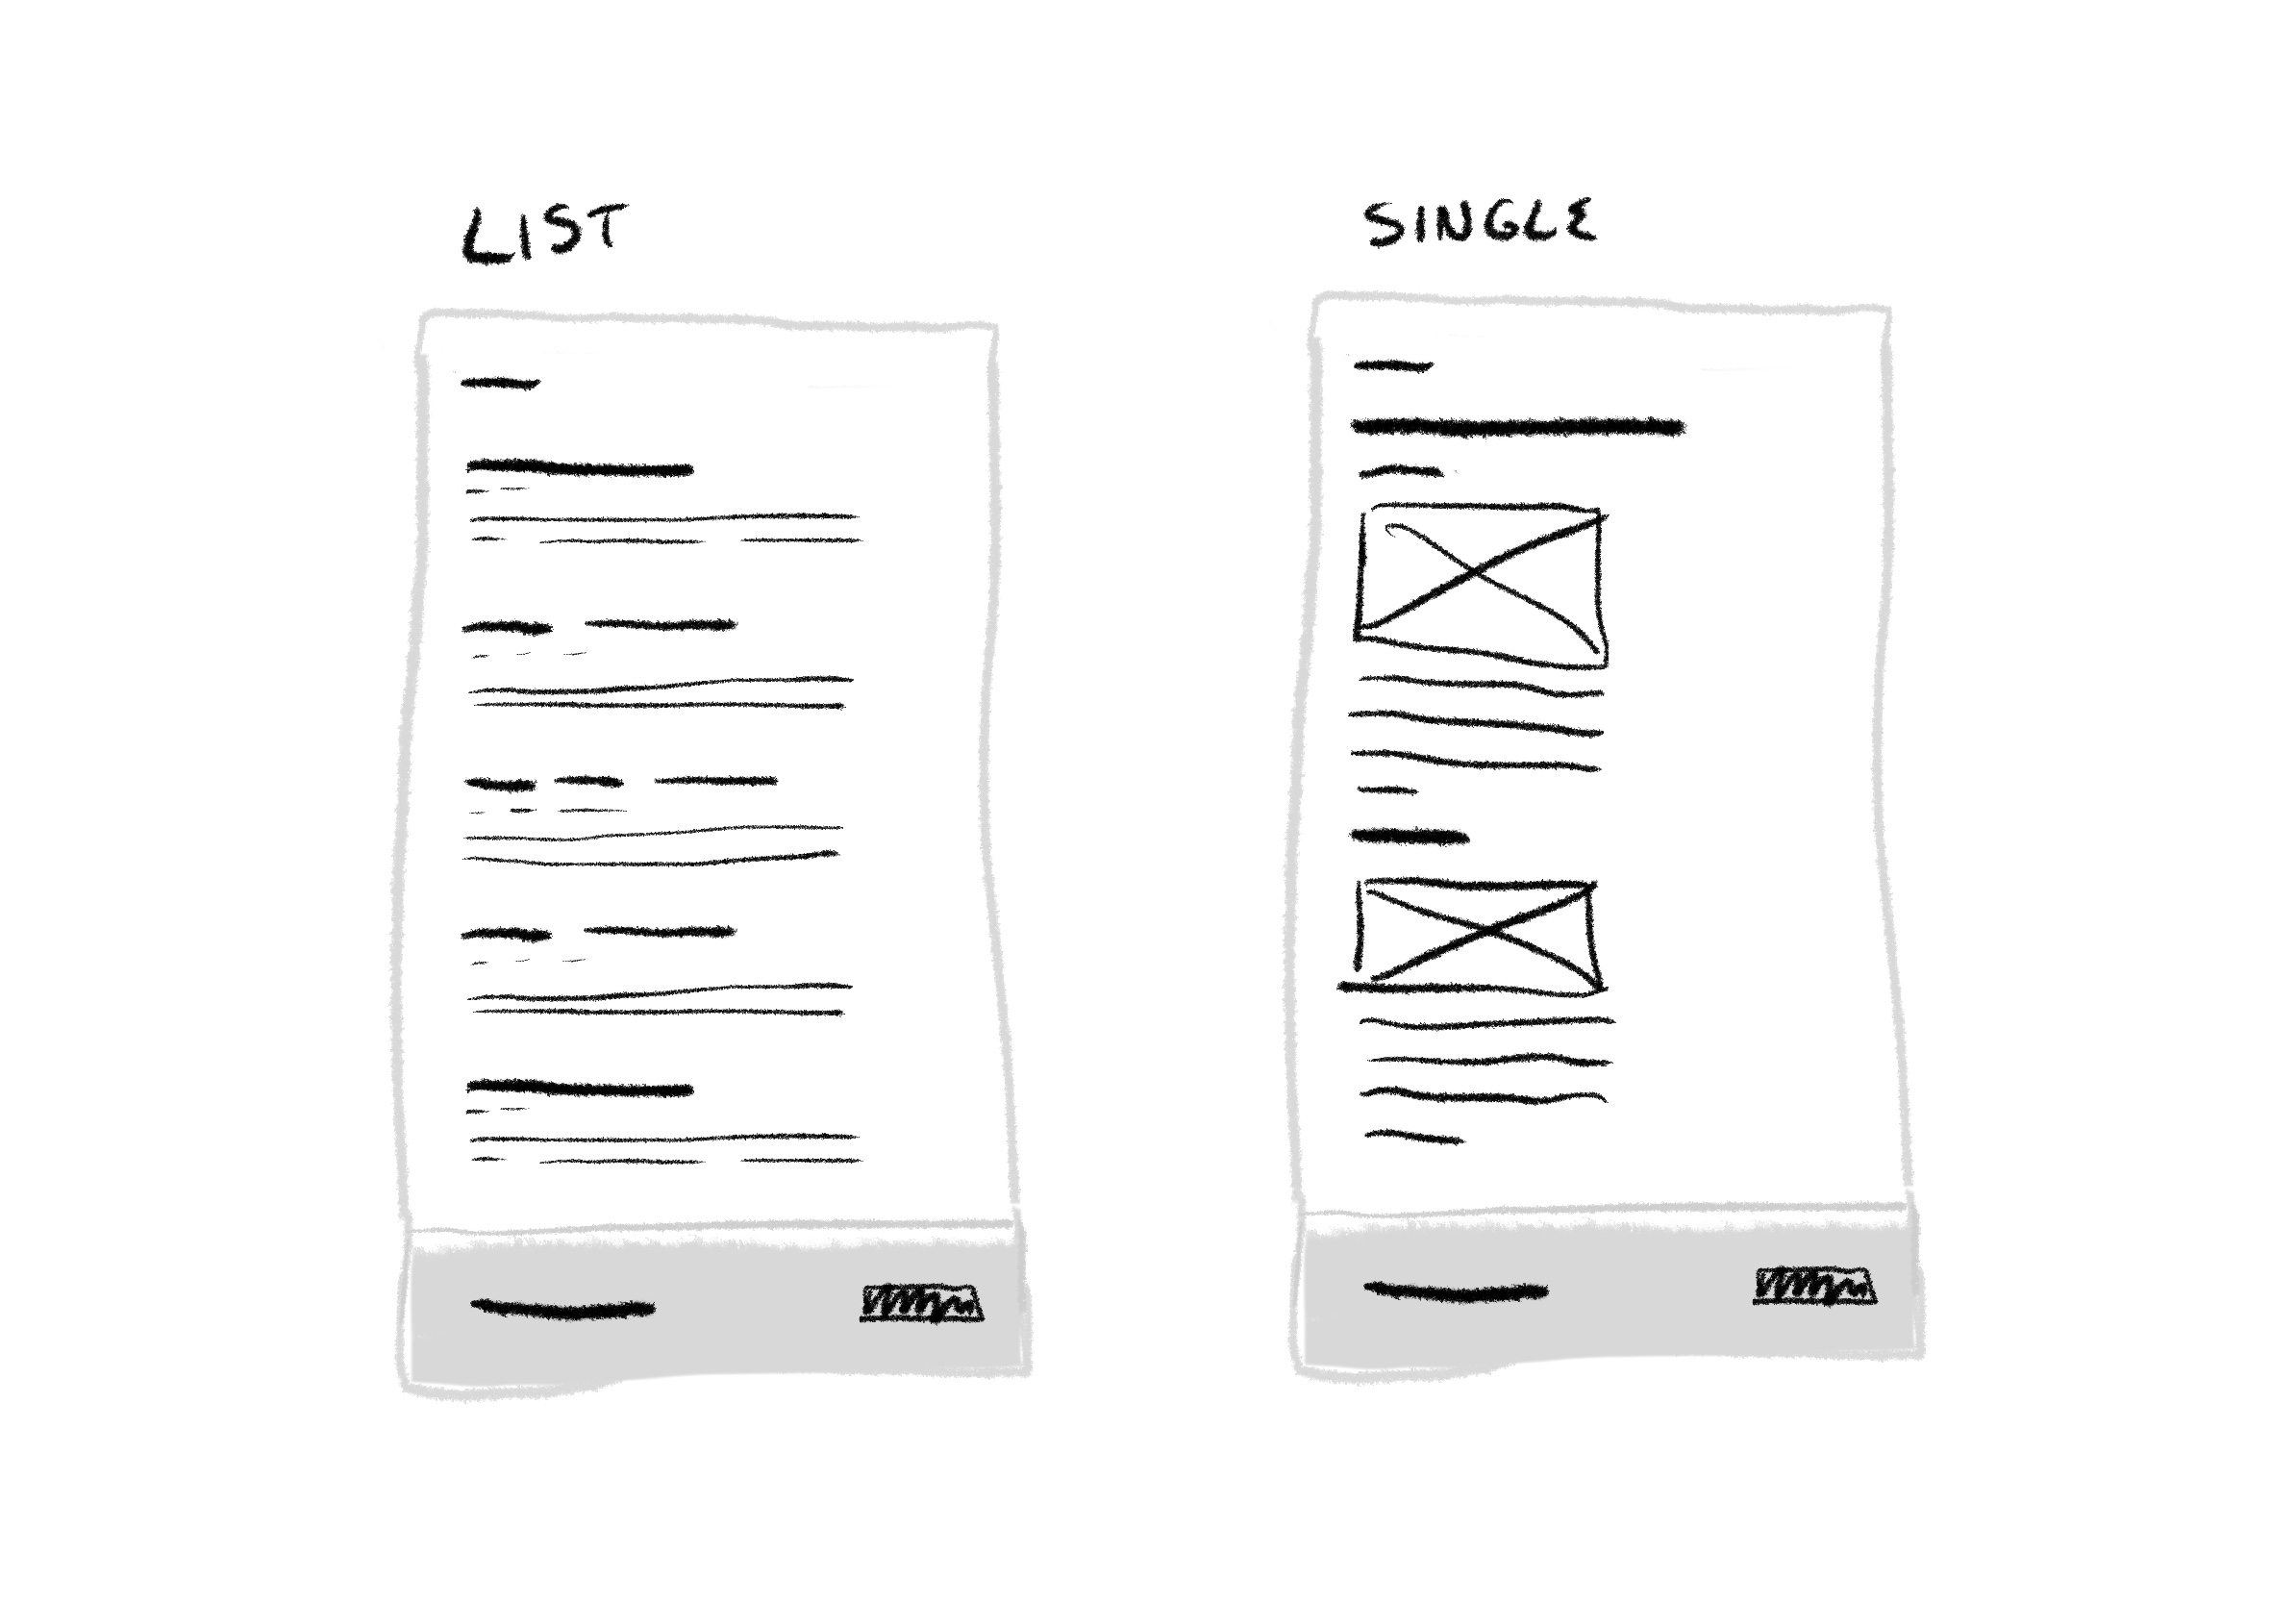 LIST
SINGLE